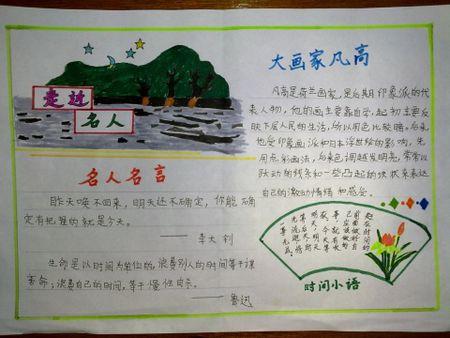 走近
名人
名人名言
昨天唤不回来，明天还不确定，你能确
定有把握的就是今天。
——李大钊
生命是以时间为单位的，浪费别人的时间等于谋
害命；浪费自己的时间，等于慢性自杀。
——鲁迅
大画家凡高
凡高是荷兰画家，是后期印象派的代
表人物，他的画主要靠自学，起初主要反
映下层人民的生活，所以用色比较暗，后来
他受印象画派和日本浮世绘的影响，先
用点彩画法，后来色调越发明亮，常常以
跃动的线条和一些凸起的块状来表达
自己的激动情绪和感受。
时间小语